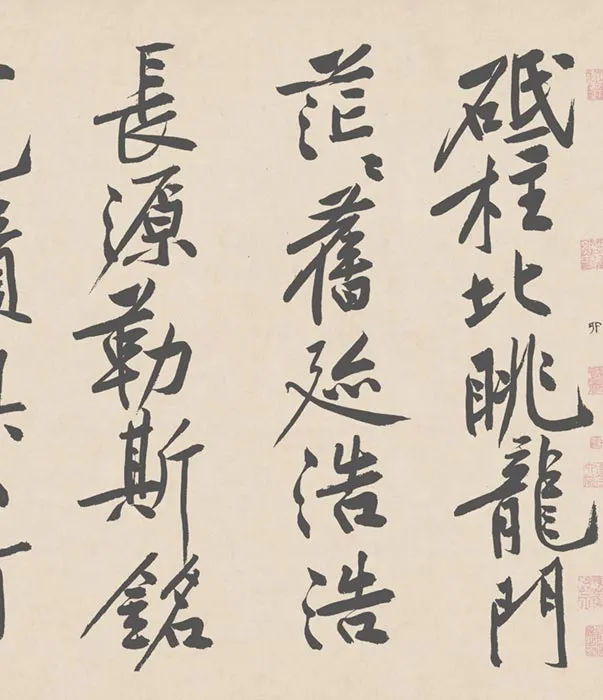 卯
砥柱北眺龍門
茫〻舊迹浩浩
長源勒斯銘